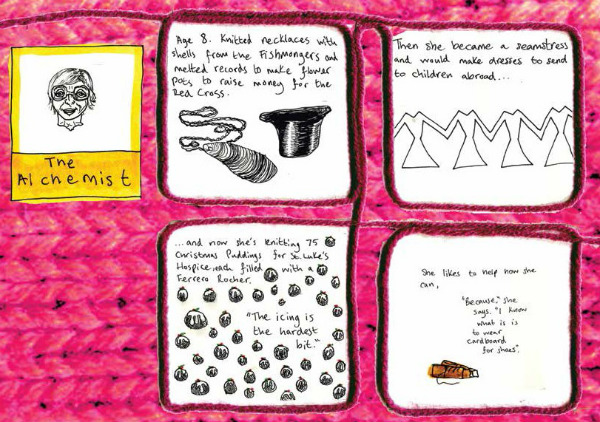 The
Alchemist
Age 8. Knitted necklaces with
shells from the Fishmongers and
melted records to make flower
pots to raise money for the
Red Cross.
Then she became a seamstress
and would make dresses to send
to children abroad...
...and now she's knitting 75
Christmas Puddings for St. Luke's
Hospice, each filled with a
Ferrero Rocher.
"The icing is
the hardest
bit."
She likes to help how she
can,
"Because," she
says. "I know
what is is
to wear
cardboard
for shoes".